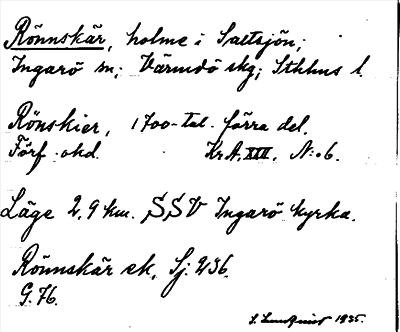 Rönnskär, holme i Saltsjön;
Ingarö sn; Värmdö skg; Sthlms l.
Rönskier, 1700-tal. förra del.
Förf. okd. Kr.A. XIII. N:o 6.
Läge 2,9 km. SSV Ingarö kyrka.
Rönnskär ek, Sj. 236.
G. 76.
S. Lundquist 1935.